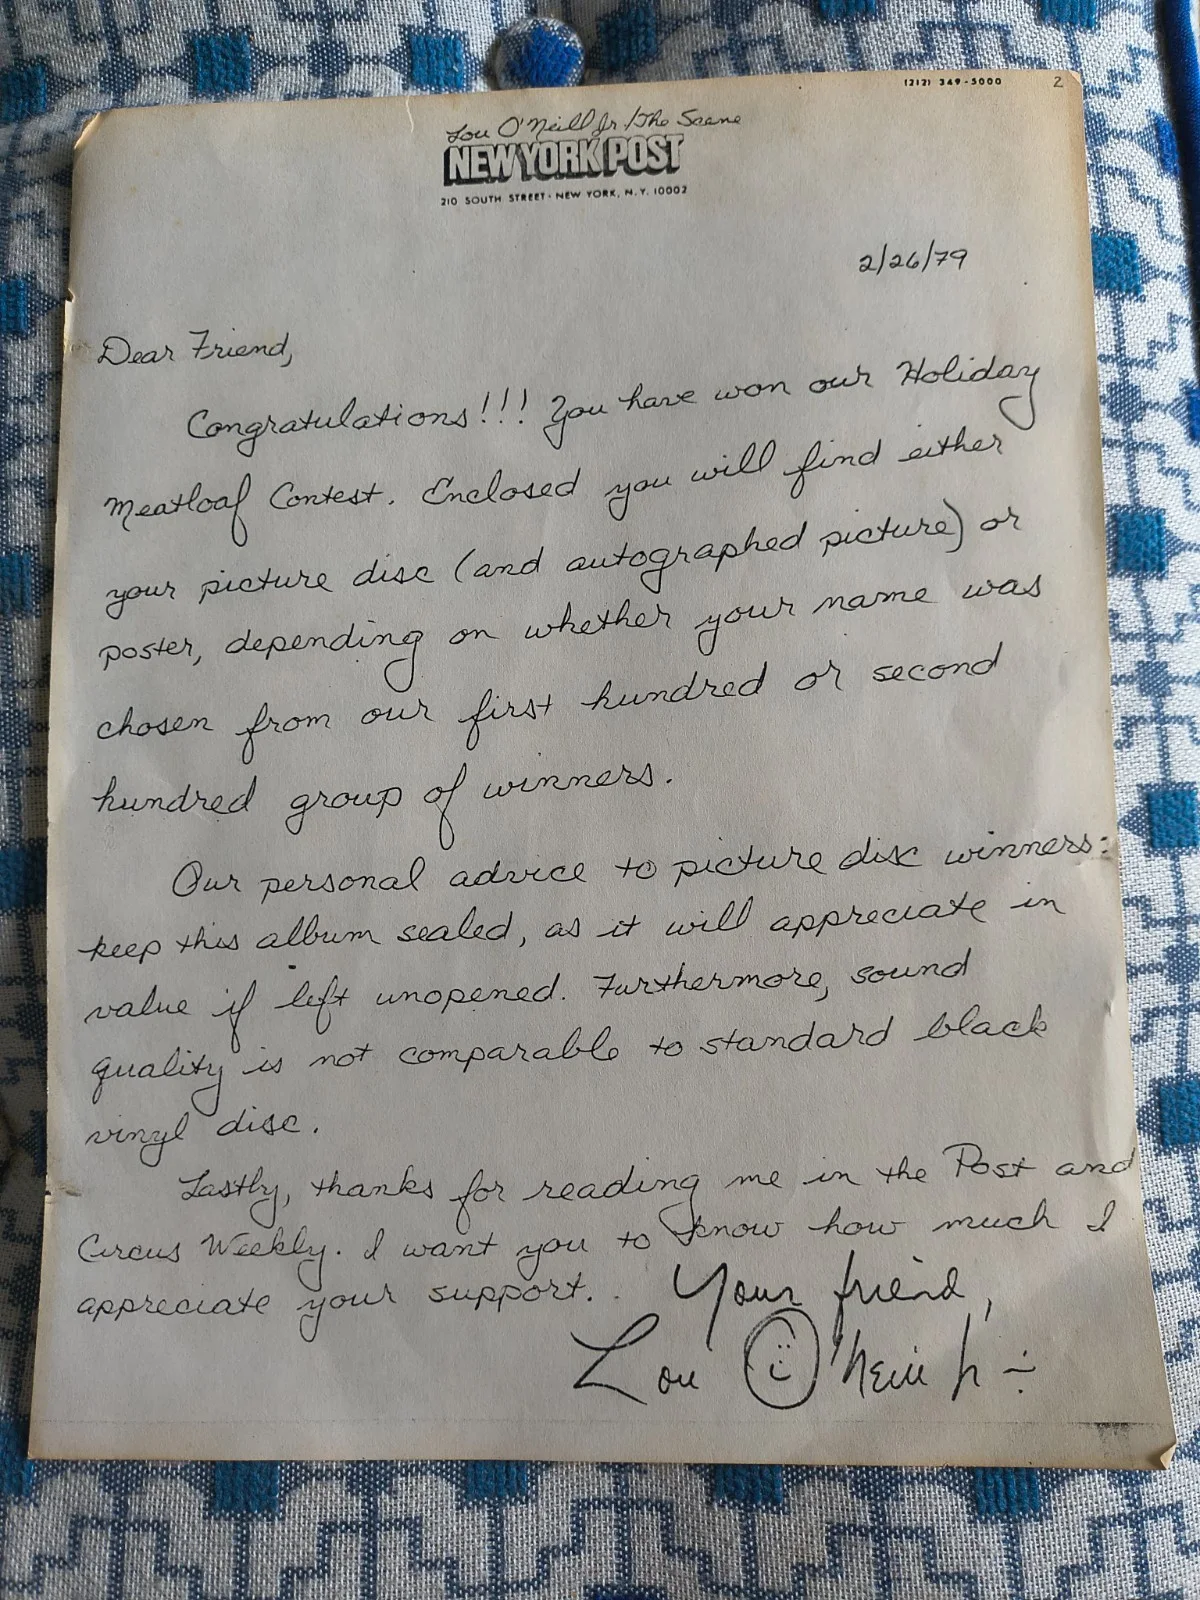 (212) 349-5000 2
Lou O'Neill Jr/The Scene
NEW YORK POST
210 SOUTH STREET - NEW YORK, N.Y. 10002
2/26/79
Dear Friend,
Congratulations!!! You have won our Holiday
Meatloaf Contest. Enclosed you will find either
your picture disc (and autographed picture) or
poster, depending on whether your name was
chosen from our first hundred or second
hundred group of winners.
Our personal advice to picture disc winners:
keep this album sealed, as it will appreciate in
value if left unopened. Furthermore, sound
quality is not comparable to standard black
vinyl disc.
Lastly, thanks for reading me in the Post and
Circus Weekly. I want you to know how much I
appreciate your support. Your friend,
Lou O'Neill Jr